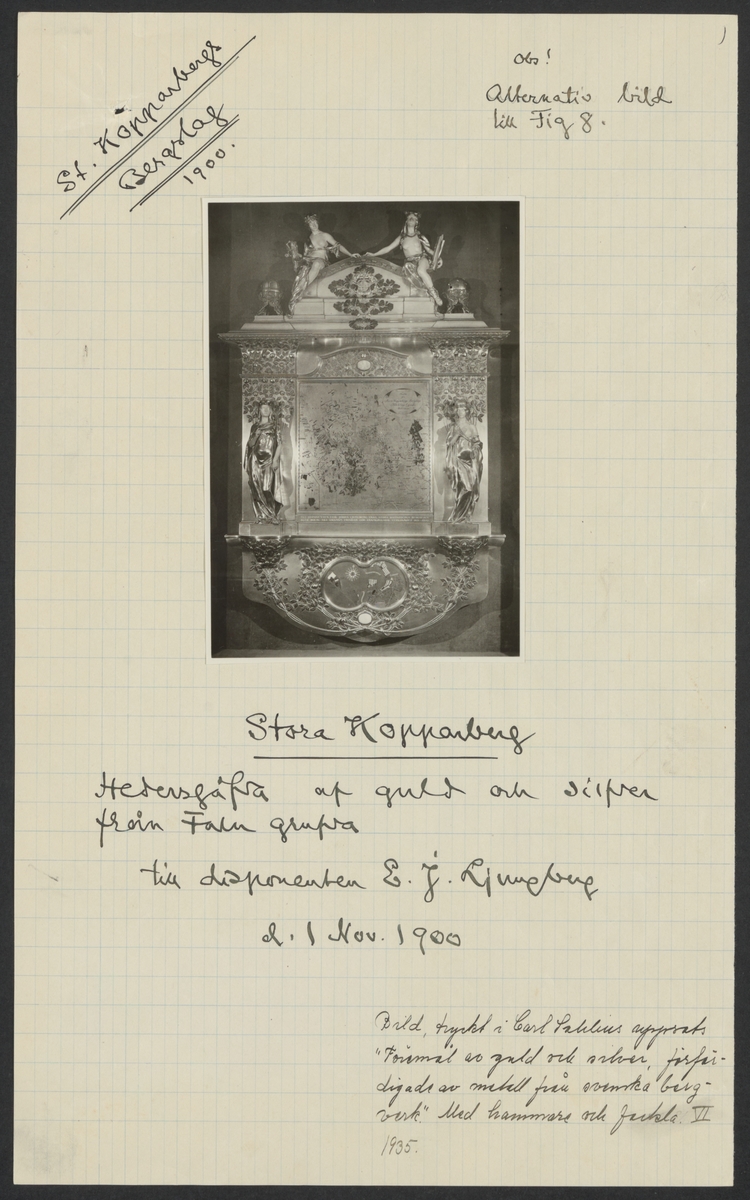 St. Kopparbergs
Bergslag
1900.
Obs!
Alternativ bild
till Fig 8.
Stora Kopparberg
Hedersgåfva af guld och silfver
från Falu grufva
till disponenten E. J. Ljungberg
d. 1 Nov. 1900
Bild, tryckt i Carl Sahlins uppsats
"Föremål av guld och silver, förfär-
digade av metall från svenska berg-
verk". Med hammare och fackla. VI
1935.